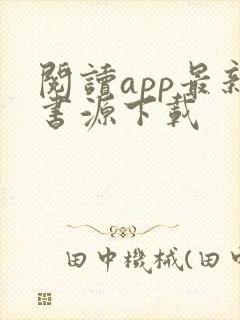 閱讀app最新
書源下載
田中機械(田中